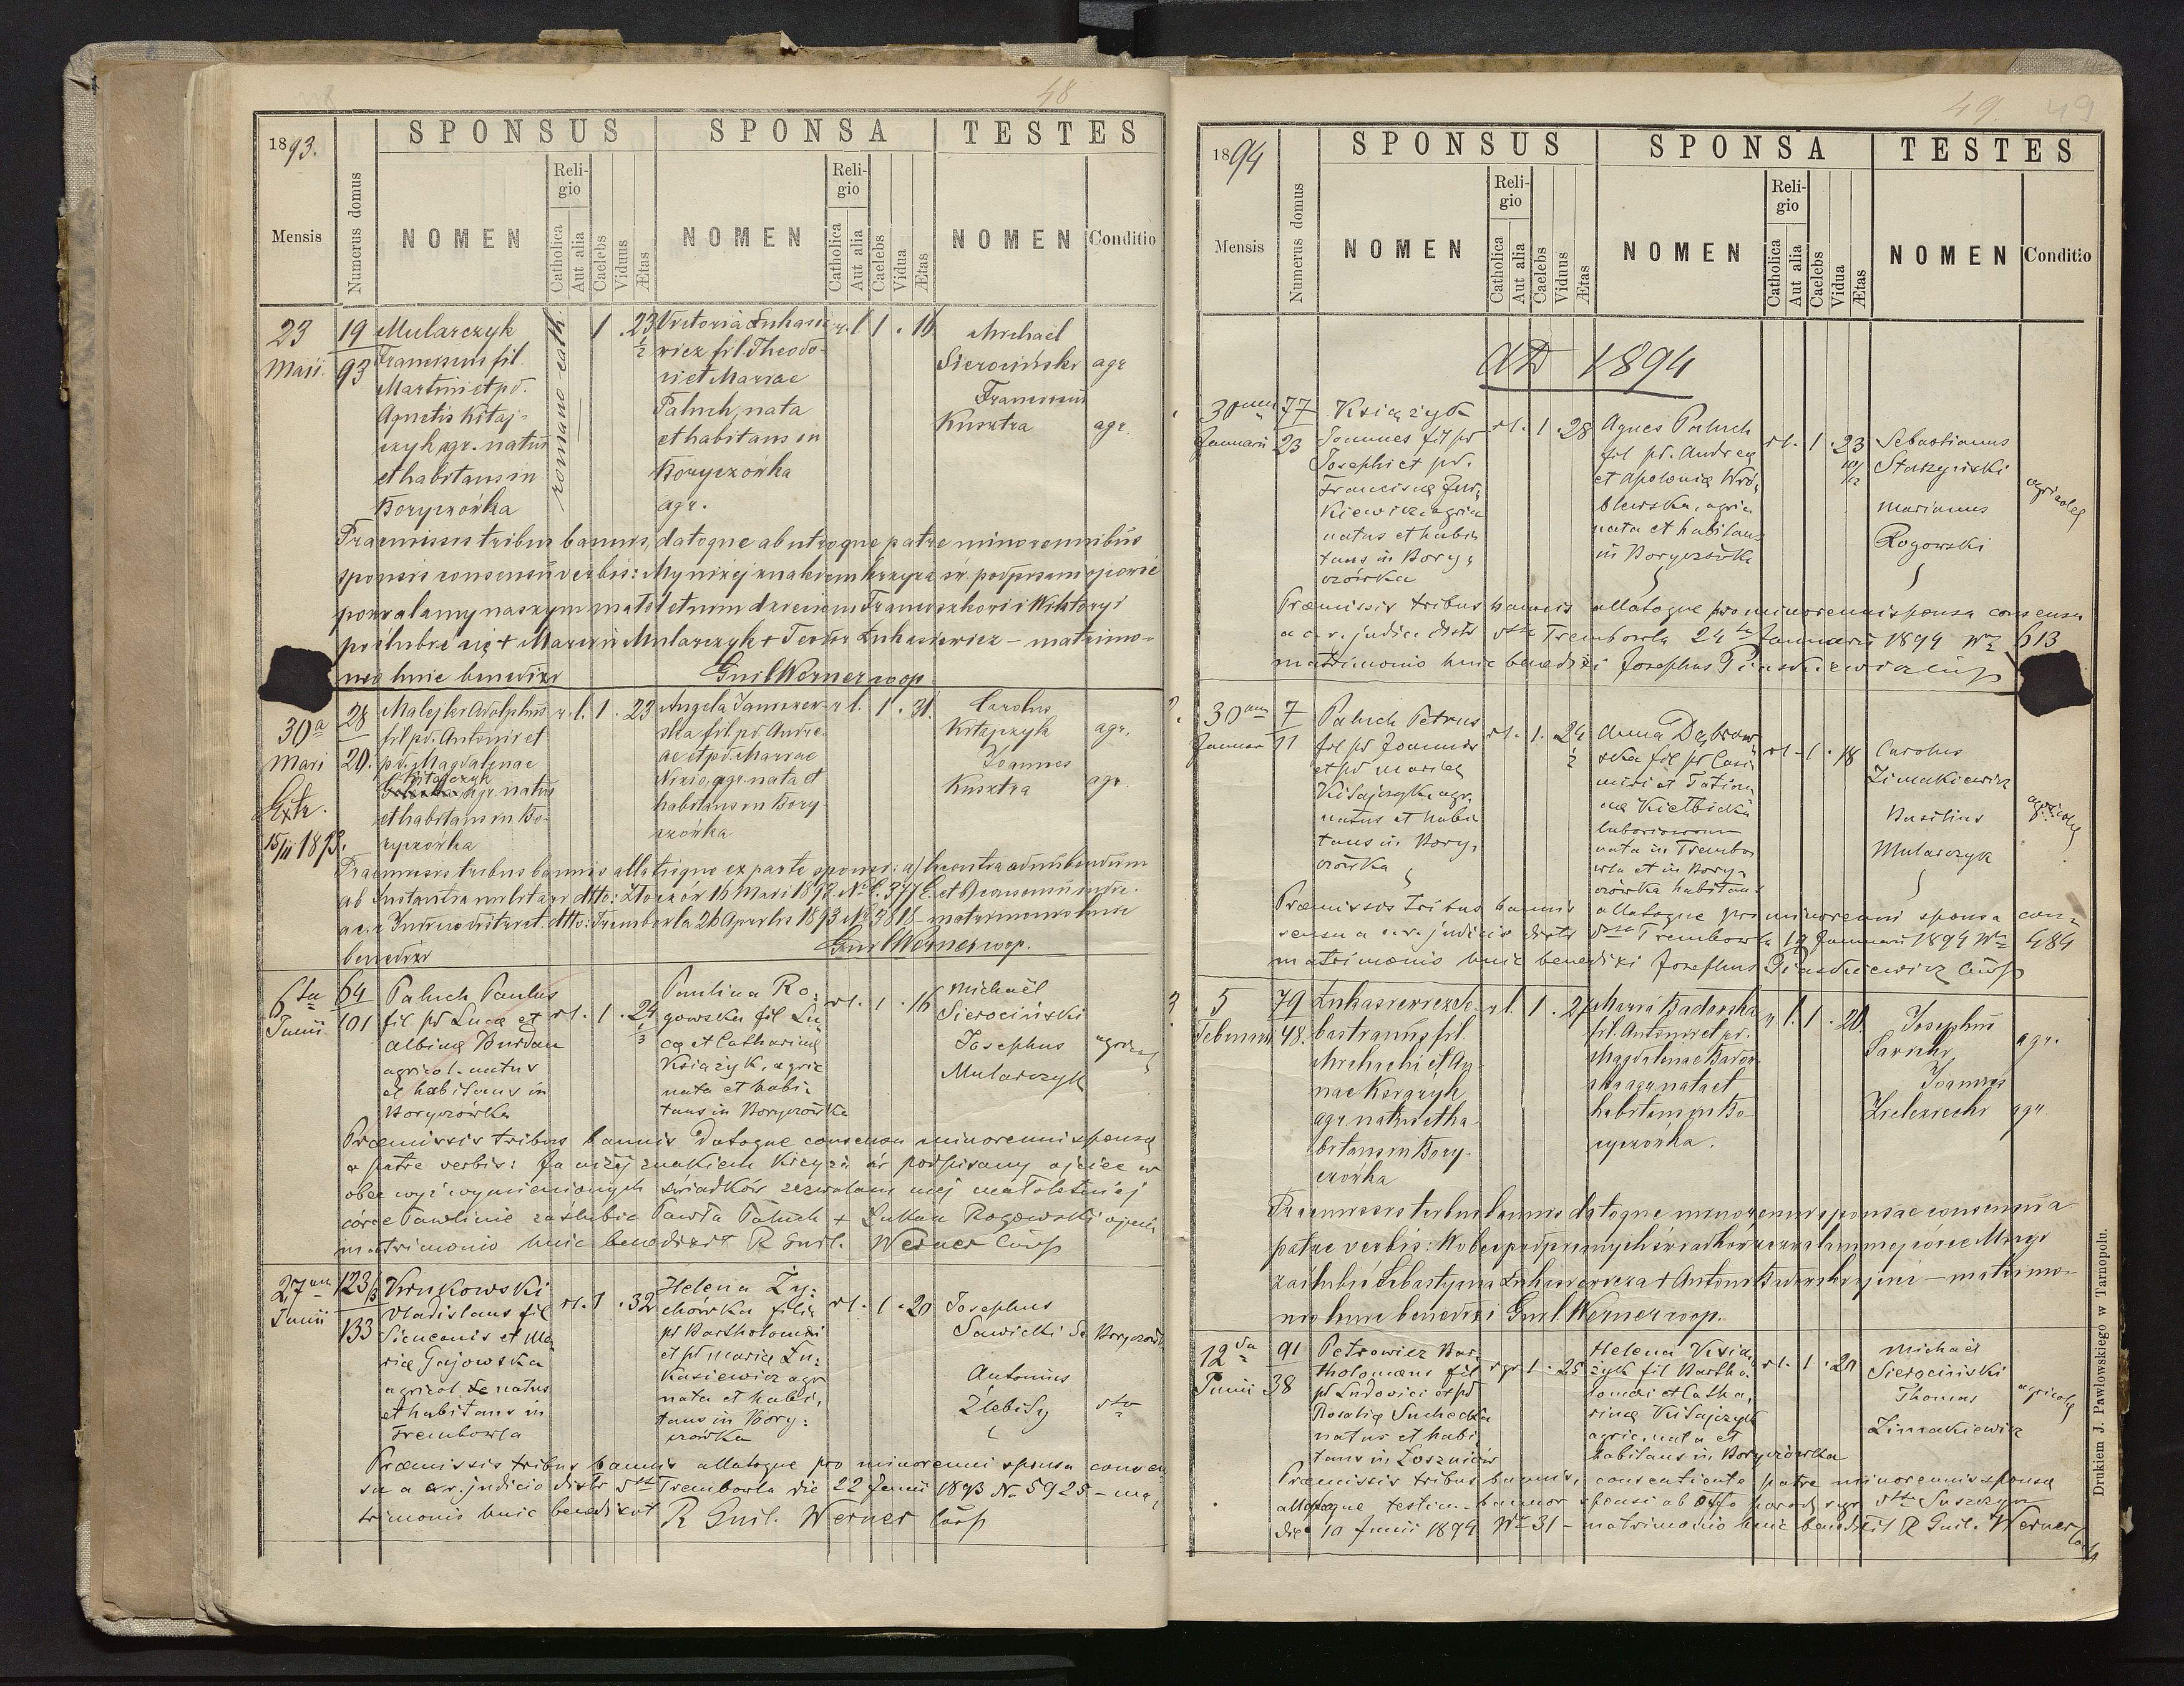 48
1893.
SPONSUS
SPONSA
TESTES
Mensis
Numerus domus
NOMEN
Religio
Catholica
Aut alia
Caelebs
Viduus
Ætas
NOMEN
Religio
Catholica
Aut alia
Caelebs
Vidua
Ætas
NOMEN
Conditio
23 Maii
19
93
Mularczyk
fil.
Martini et pd.
Agnetis Kitaj-
czyk agr. natus
et habitans in
Boryczówka
romano cath.
1 . 23 1/2
Victoria Lukasie-
wicz fil. Theodo-
ri et Mariae
Paluch, nata
et habitans in
Boryczówka
agr.
r. l 1 . 16
Michael
Sierociński agr
Kusztra agr.
Praemissis tribus bannis, datoque ab utroque patre minorennibus
sponsis consensu verbis: My niżej znakiem krzyża św. podpisani ojcowie
pozwalamy naszym małoletnim dzieciom Franciszkowi i Wiktoryi
poślubić się + Marcin Mularczyk + Teodor Lukasiewicz – matrimo-
nio huic benedixi Guil Werner coop
30a
Maii
Extr.
15/11 1893.
28
20.
Adolphus
fil pd. Antonii et
pd. Magdalenae
Kitajczyk
agr. natus
et habitans in Bo-
ryczówka
r. l. 1 . 23
Angela
ska fil. pd. Andre-
ae et pd. Mariae
agr. nata et
habitans in Bory-
czówka
r l. 1 . 31.
Carolus
Kitajczyk agr.
Joannes
Kusztra agr.
Praemissis tribus bannis allatisque ex parte sponsi: a)
ab Instantia militari dtto: Złoczów 16 Maii 1893
dtto: Trembowla 26 Aprilis 1893 No 3818 matrimonio huic
benedixi Guil Werner coop.
6ta
Junii
64
101
Paluch Paulus
fil pd Luca et
Albina Burdan
agricol. natus
et habitans in
Boryczówka
rl. 1 . 24 1/3
Paulina Ro-
gowska fil Lu-
ca et Catharina
Książyk, agric
nata et habi-
tans in Boryczówka
rl. 1 . 16
Michaël
Sierociński
Josephus
Mularczyk
Praemissis tribus bannis datoque consensu minorenni sponsa
a patre verbis: Ja niżej znakiem Krzyża św podpisany ojciec w
obec wyż wymienionych świadków zezwalam mej małoletniej
córce Pawlinie zaślubić Pawła Paluch + Łukasz Rogowski ojciec
matrimonio huic benedixit R Guil. Werner Coop
27
Junii
123/3
133
Krukowski
Vladislaus fil
Simeonis et Ma-
ria Gajowska
agricol. natus
et habitans in
Trembowla
rl. 1 . 32
Helena Zy-
chówka filia
pd Bartholomei
et pd Maria Lu-
kasiewicz agr
nata et habi-
tans in Bory-
czówka
rl. 1 . 20
Josephus
Sawicki
Antonius
Praemissis tribus bannis allatoque pro minorenni sponsa consen-
su a c.r. judicio distr Trembowla die 22 Junii 1893 No 5925 – ma-
trimonio huic benedixit R Guil. Werner Coop
49. 49
1894
SPONSUS
SPONSA
TESTES
Mensis
Numerus domus
NOMEN
Religio
Catholica
Aut alia
Caelebs
Viduus
Ætas
NOMEN
Religio
Catholica
Aut alia
Caelebs
Vidua
Ætas
NOMEN
Conditio
AD 1894
30
Januarii
77
23
Książyk
Joannes fil pd
Josephi et pd.
Francisca Jur-
kiewicz agric
natus et habi-
tans in Bory-
czówka
rl. 1 . 28
Agnes Paluch
fil pd. Andrea
et Apolonia Wró-
blewska, agric
nata et habitans
in Boryczówka
rl. 1 . 23 10/12
Sebastianus
Starzyński
Marianus
Rogowski
agricolae
Praemissis tribus bannis allatoque pro minorenni sponsa consensu
a c.r. judicio distr Trembowla 24 Januarii 1894 No 613
matrimonio huic benedixi Josephus Piaskiewicz Coop
2.
30
Januar
7
11
Paluch Petrus
fil pd Joannis
et pd Maria
Kitajczyk agr.
natus et habi-
tans in Bory-
czówka
rl. 1. 24 1/2
Anna Dąbrow-
ska fil pd Casi-
miri et Tatian-
na Kiełbicka
nata in Trembo-
wla et in Bory-
czówka habitans
rl. 1 . 18
Carolus
Zimakiewicz
Basilius
Mularczyk
agricolae
Praemissis tribus bannis allatoque pro minorenni sponsa con-
sensu a c.r. judicio distr Trembowla 19 Januarii 1894 No 484
matrimonio huic benedixi Josephus Piaskiewicz Coop
3
5
Februarii
79
48.
Lukasiewicz Se-
bastianus fil.
Michaelis et An-
nae
agr natus et ha-
bitans in Bory-
czówka
r l. 1 . 27
Maria Badowska
fil. Antonii et pd.
Magdalenae
agr nata et
habitans in Bo-
ryczówka.
r. l. 1 . 20.
Josephus
Sawicki agr.
Joannes
agr.
Praemissis tribus bannis datoque minorenni sponsae consensu a
patre verbis: Wobec podpisanych świadków zezwalam mej córce Maryi
zaślubić Sebastyana Lukasiewicza + Antoni Badowski ojciec – matrimo-
nio huic benedixi Guil. Werner coop.
12
Junii
91
38
Petrowicz Bar-
tholomaeus fil
pd Ludovici et pd
Rosalia Suchecka
natus et habi-
tans in Łoszniów
r gr 1 . 25
Helena Książ-
żyk fil Bartho-
lomei et Catha-
rina Kitajczyk
agric. nata et
habitans in Boryczówka
rl. 1 . 21
Michaël
Sierociński
Thomas
Zimakiewicz
agricolae
Praemissis tribus bannis, consentiente patre minorennis sponsa
allatoque testim. bannor sponsi ab offo paroch r gr
die 10 Junii 1894 No 31 – matrimonio huic benedixit R Guil. Werner
Coop
Drukiem J. Pawlowskiego w Tarnopolu.